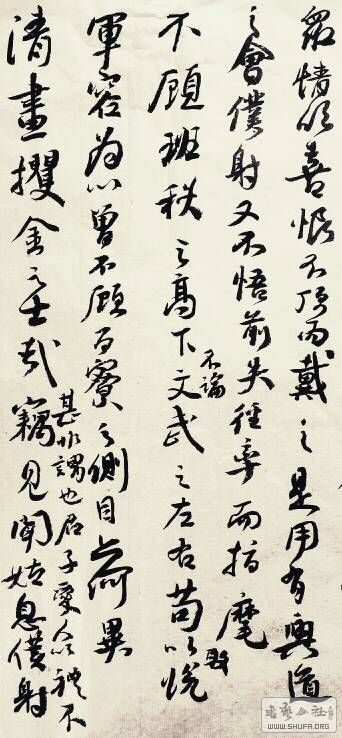 眾情欣喜恨不頂而戴之是用有興道
之會僕射又不悟前失徑率而指麾
不顧班秩之高下不論文武之左右苟以取悅
軍容為心曾不顧百寮之側目亦何異
甚非謂也君子愛人以禮不
清晝攫金之士哉竊見聞姑息僕射
書藝公社
WWW.SHUFA.ORG